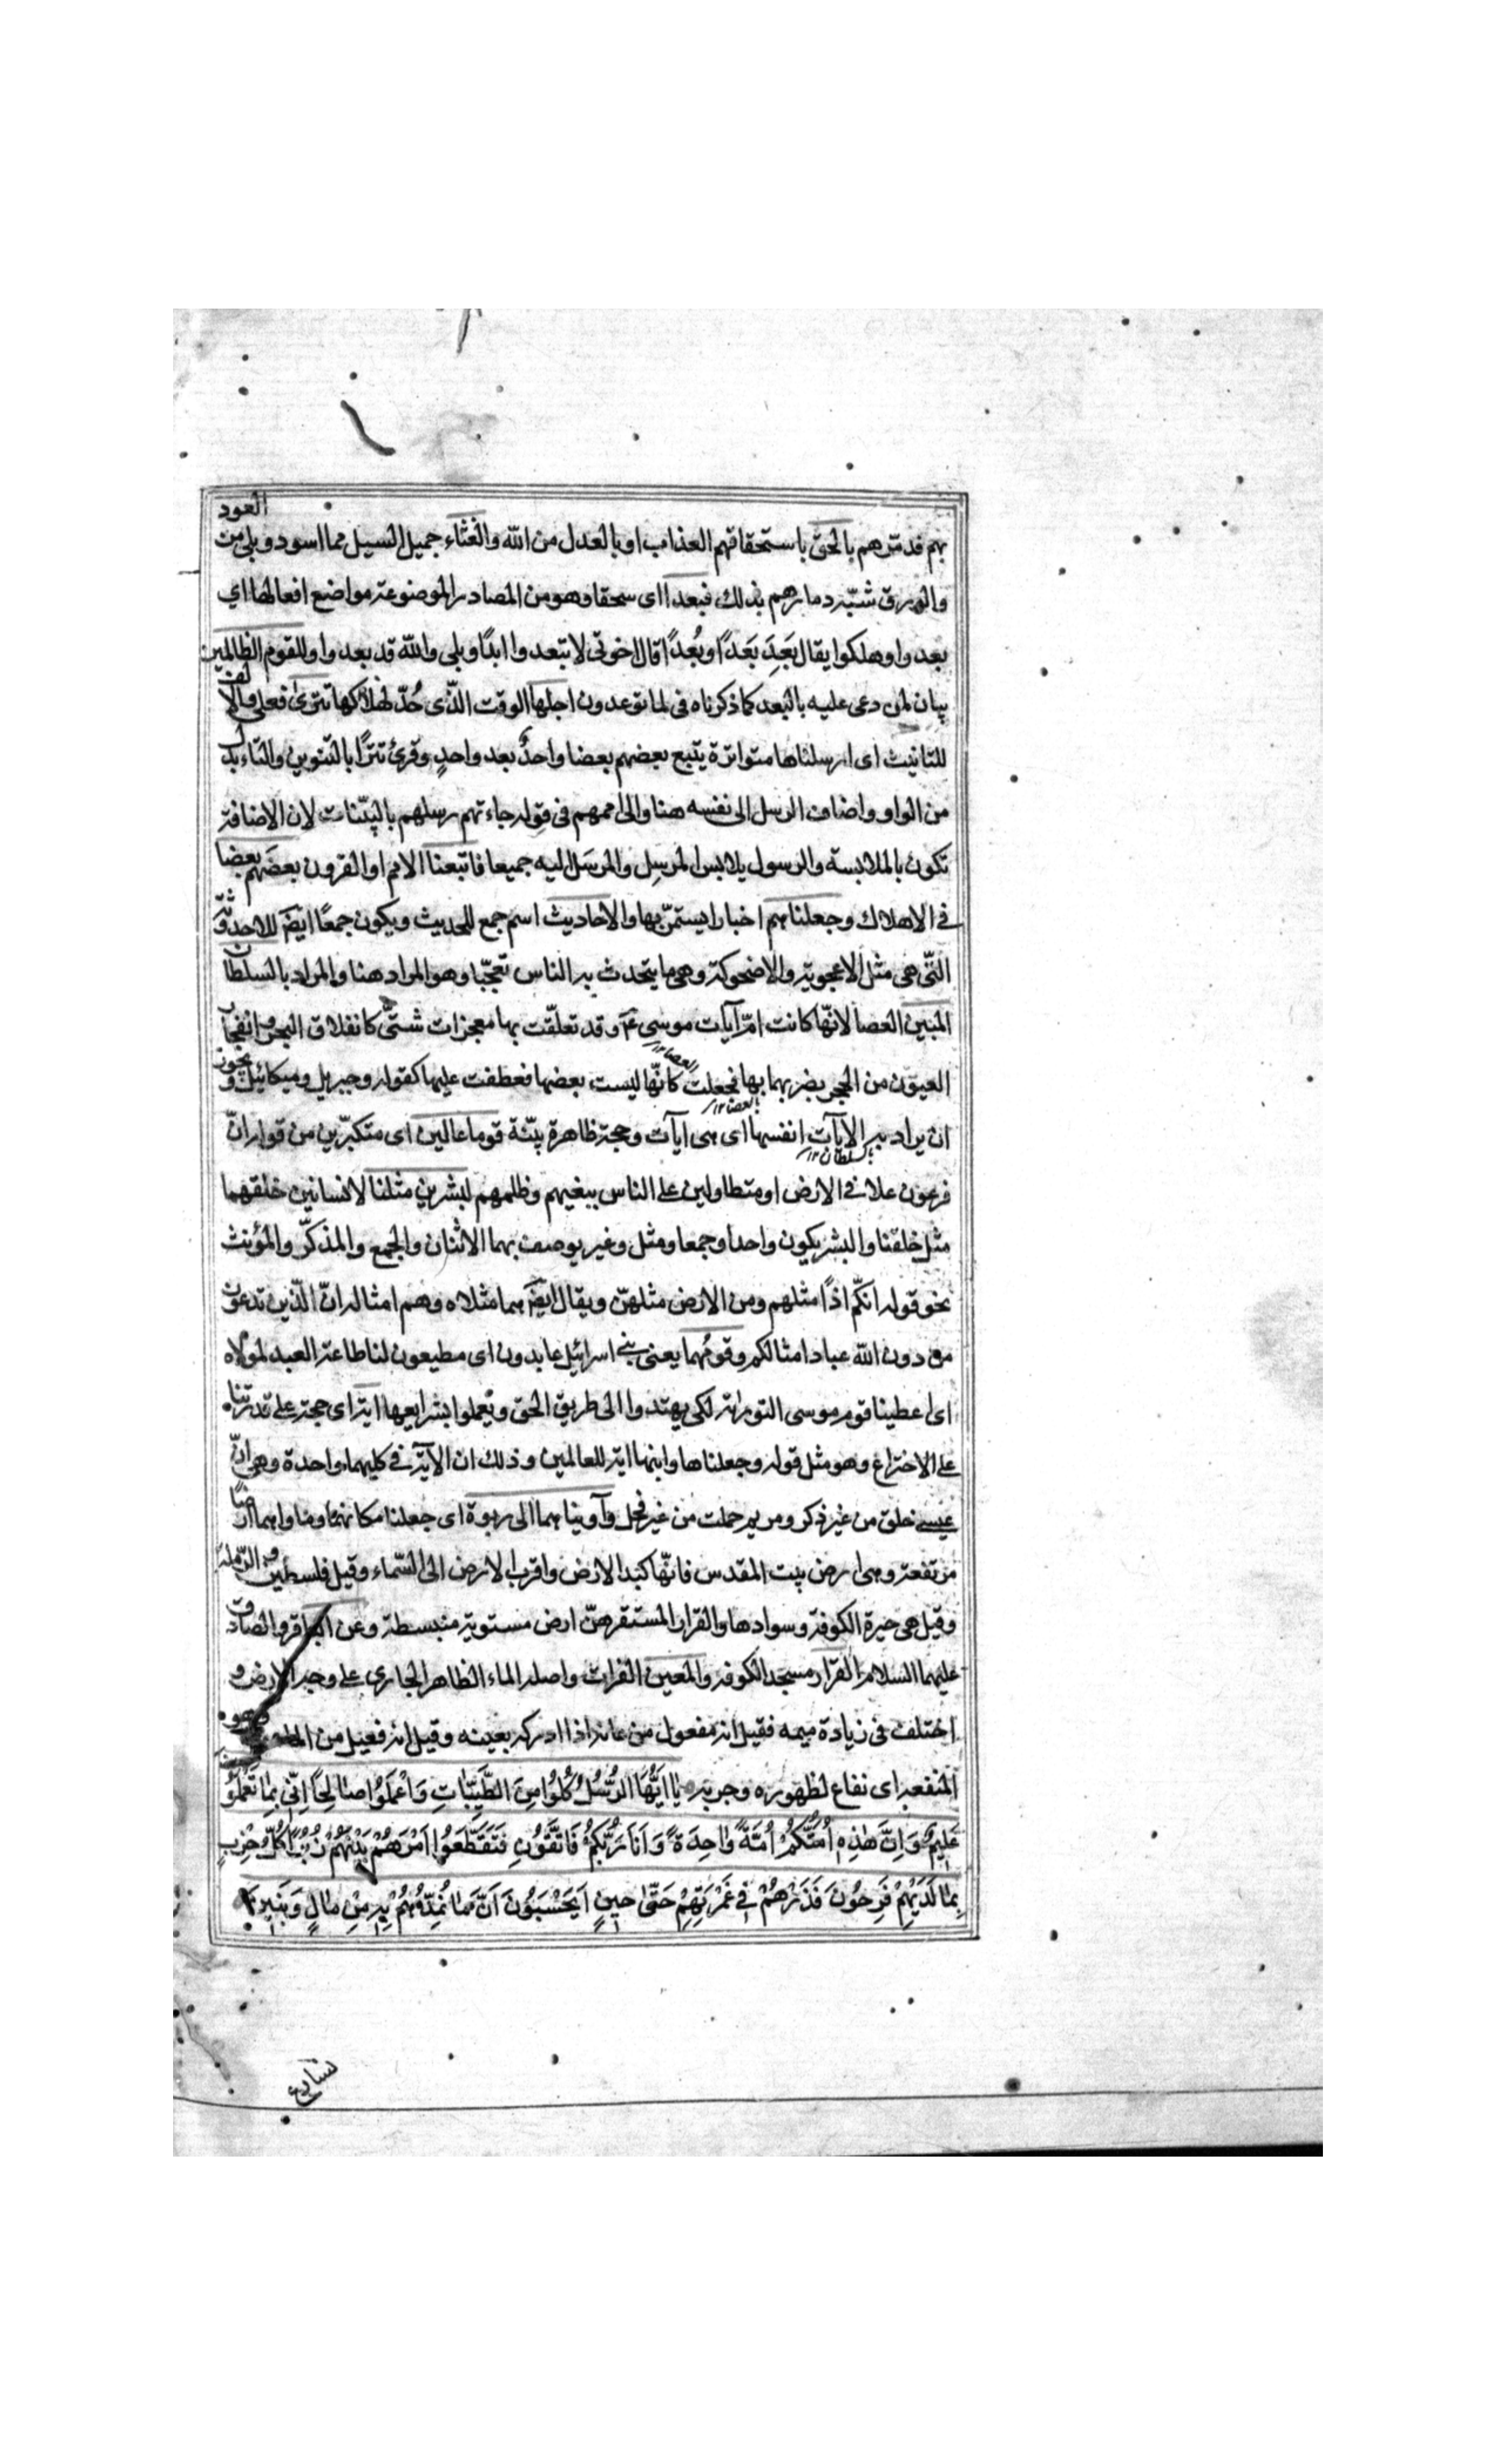 بهم فدمّرهم بالحق باستحقاقهم العذاب او بالعدل من الله والغثاء جميل السيل مما اسود وبلى من العود
والورق شبّه دمارهم بذلك فبعدا اى سحقا وهو من المصادر الموضوعة مواضع افعالها اي
بعدوا وهلكوا يقال بَعِدَ بَعَدًا وبُعْدًا قال اخوتى لا تبعدوا ابدًا وبلى والله قد بعدوا وللقوم الظالمين
بيان لمن دعى عليه بالبعد كما ذكرناه فى لما توعدون اجلها الوقت الذّى حُدّ لهلاكها تترى فعلى والالف
للتانيث اى ارسلناها متواترة يتبع بعضهم بعضا واحدٌ بعد واحدٍ وقرئ تترًا بالتنوين والتاء بدل
من الواو واضاف الرسل الى نفسه هنا والى اممهم فى قوله جاءتهم رسلهم بالبيّنات لان الاضافة
تكون بالملابسة والرسول يلابس المرسِل والمرسَل اليه جميعا فاتبعنا الامم او القرون بعضَهم بعضا
فى الاهلاك وجعلناهم اخبارا يستمرّ بها والاحاديث اسم جمع للحديث ويكون جمعًا ايضَ للاحدوثة
التّى هى مثل الاعجوبة والاضحوكة وهى ما يتحدث به الناس تعجّبا وهو المراد هنا والمراد بالسلطان
المبين العصا لانّها كانت امّ آيات موسى ع وقد تعلّقت بها معجزات شتىّ كانفلاق البحر وانفجار
العيون من الحجر بضربهما بها فجعلت كانّها ليست بعضها فعطفت عليها كقوله وجبريل وميكائيل ويجون
العصا ١٢
ان يراد به الايآت انفسها اى هى آيات وحجة ظاهرة بيّنة قوما عالين اى متكبّرين من قوله انّ
بالعصا ١٢
بالسلطان ١٢
فرعون علا فى الارض او متطاولين على الناس ببغيهم وظلمهم لبشرين مثلنا لانسانين خلقهما
مثل خلقنا والبشر يكون واحدا وجمعا ومثل وغير يوصف بهما الاثنان والجمع والمذكّر والمؤنث
نحو قوله انكّم اذًا مثلهم ومن الارض مثلهنّ ويقال ايضَ هما مثلاه وهم امثاله انّ الّذين تدعون
من دون الله عباد امثالكم وقومُهما يعنى بنى اسرائيل عابدون اى مطيعون لنا طاعة العبد لمولاه
اى اعطينا قوم موسى التوراة لكى يهتدوا الى طريق الحق ويعملوا بشرايعها اية اى حجة على قدرتنا
على الاختراع وهو مثل قوله وجعلناها وابنها اية للعالمين وذلك ان الآية فى كليهما واحدة وهى انّ
عيسى خلق من غير ذكر ومريم حملت من غير فحل وآويناهما الى ربوة اى جعلنا مكانهما وماواهما ارضًا
مرتفعة وهى ارض بيت المقدس فانّها كبد الارض واقرب الارض الى السّماء وقيل فلسطين والرّملة
وقيل هى حيرة الكوفة وسوادها والقرار المستقر من ارض مستوية منبسطة وعن الباقر والصادق
عليهما السلام القرار مسجد الكوفة والمعين الفرات واصله الماء الظاهر الجارى على وجه الارض و
اختلف فى زيادة ميمه فقيل انه مفعول من عانه اذا ادركه بعينه وقيل انه فعيل من الماعون وهو
المنفعة اى نفاع لظهوره وجريه يٰا اَيُّهَا الرُّسُلُ كُلُوا مِنَ الطَّيِّبٰاتِ وَاعْمَلُوا صٰالِحًا اِنّى بِمٰا تَعْمَلُونَ
عَليمٌ وَاِنَّ هٰذِهٖ اُمَّتُكُمْ اُمَّةً وٰاحِدَةً وَاَنَا رَبُّكُمْ فَاتَّقُونِ فَتَقَطَّعُوا اَمْرَهُمْ بَيْنَهُمْ زُبُرًا كُلُّ حِزْبٍ
بِمٰا لَدَيْهِمْ فَرِحُونَ فَذَرْهُمْ فى غَمْرَتِهِمْ حَتّٰى حينٍ اَيَحْسَبُونَ اَنَّمٰا نُمِدُّهُمْ بِهٖ مِنْ مٰالٍ وَبَنينَ
نسارع